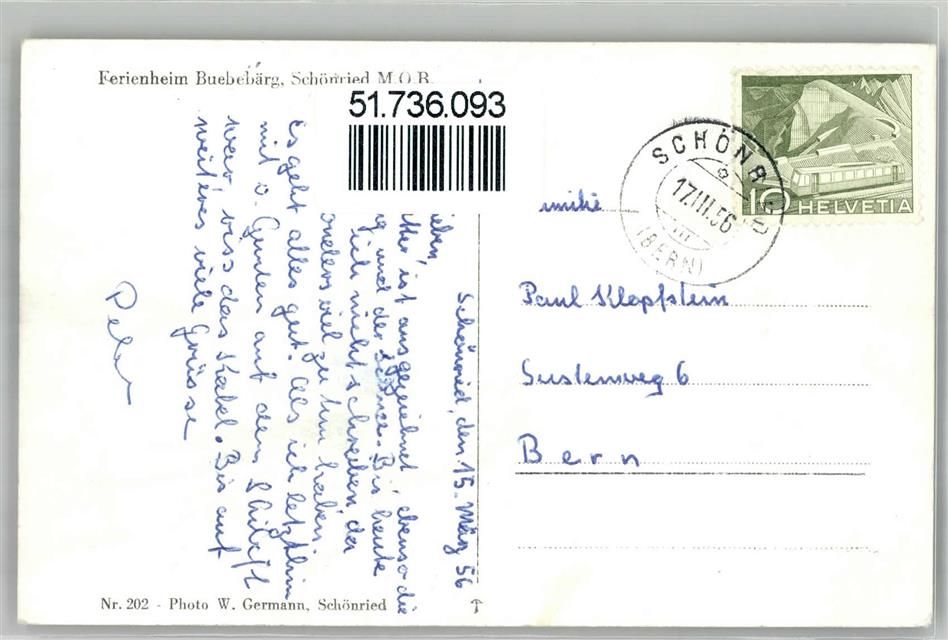 Ferienheim Buebebärg, Schönried M.O.B.
51.736.093
SCHÖNRIED
17.III.56
(BERN)
10 HELVETIA
Schönried, den 15. März 56
ist ausgezeichnet ebenso die
und der Bis heute
ich nicht schreiben, da
viel zu tun haben.
Es geht alles gut. Als ich letzthin
mit v. Gunten auf dem Skilift
war, riss das Kabel. Bis auf
weiteres viele Grüsse
Peter
Paul Klopfstein
Sustenweg 6
Bern
Nr. 202 - Photo W. Germann, Schönried